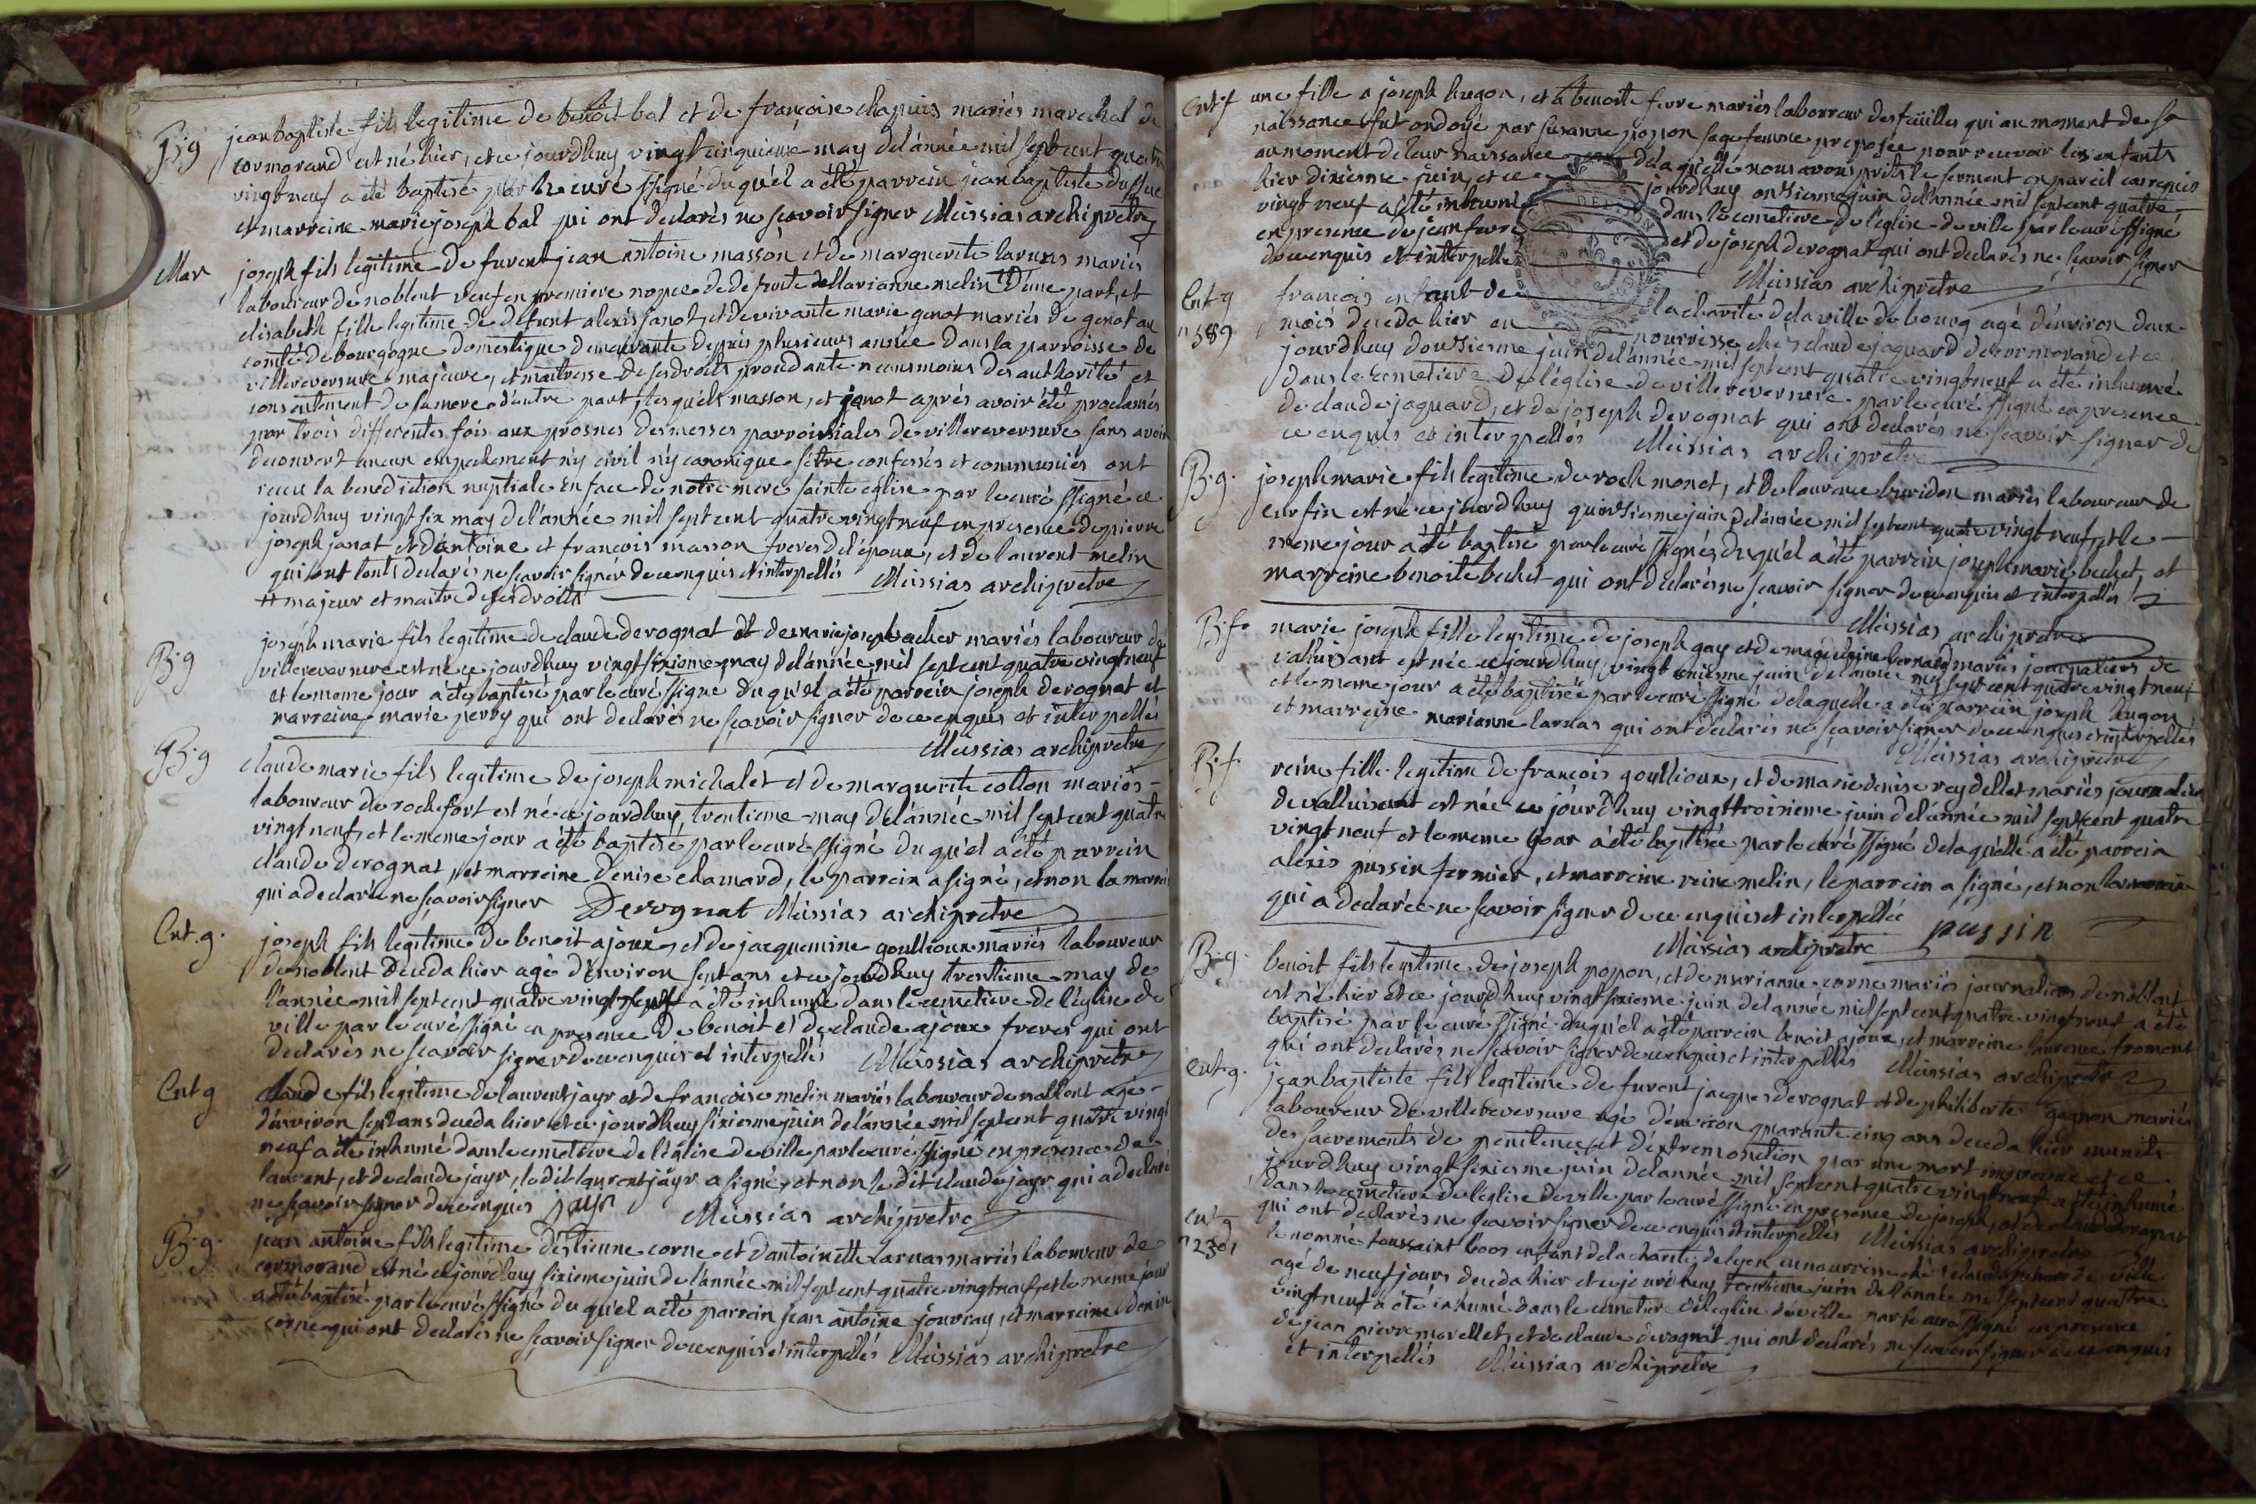 B.g jean baptiste fils legitime de benoit bal et de françoise chapuis mariés marechal de
cormorand est né hier, et ce jourdhuy vingt cinquieme may del année mil sept cent quatre
vingt neuf a été baptisé par le curé ssigné duquél a été parrein jean baptiste
et marreine marie joseph bal qui ont declarés ne scavoir signer Meissias archiprêtre
Mar joseph fils legitime de furent jean antoine masson et de marguerite larnas mariés
laboureur de noblent veuf en premiere nopce de defunte Marianne melin d'une part, et
elisabeth fille legitime de defunt alexis janot, et de vivante marie genot mariés de genot au
comté de bourgogne domestique demeurante depuis plusieurs année dans la parroisse de
villereversure majeure, et maitresse de ses droits procedante neansmoins de authorité et
consentement de sa mere d'autre part, lesquéls masson, et janot aprés avoir été proclamés
par trois differentes fois aux prosnes des messes parroissiales de villereversure sans avoir
decouvert aucun empechement n'y civil n'y canonique s'etre confessés et communiés ont
receu la benediction nuptiale en face de notre mere sainte eglise par le curé ssigné ce
jourdhuy vingt six may de l'année mil sept cent quatre vingt neuf en presence de pierre
joseph janat et d'antoine et francois masson freres de l'époux, et de laurent melin
qui ont touts declarés ne scavoir signér de ce enquis et interpellés Meissias archiprêtre
# majeur et maitre de ses droits
B.g joseph marie fils legitime de claude derognat et de marie joseph acher mariés laboureur de
villereversure est né ce jourdhuy vingt sixieme may del année mil sept cent quatre vingt neuf
et le meme jour a été baptisé par le curé ssigné duquél a été parrein joseph derognat et
marreine marie perry qui ont declarés ne scavoir signer de ce enquis et interpellés
Meissias archiprêtre
B.g claude marie fils legitime de joseph michalet et de marguerite cotton mariés
laboureur de rochefort est né ce jourdhuy trentieme may del année mil sept cent quatre
vingt neuf, et le meme jour a été baptisé par le curé ssigné duquél a été parrein
claude derognat, et marreine denise chanard, le parrein a signé, et non la marreine
qui a declarée ne scavoir signer Derognat Meissias archiprêtre
Ent.g. joseph fils legitime de benoit ajoux, et de jacquemine goullioux mariés laboureur
de noblent déceda hier agé d'environ sept ans et ce jourdhuy trentieme may de
l'année mil sept cent quatre vingt neuf a été inhumé dans le cemetiere de l'église de
ville par le curé ssigné en presence de benoit et de claude ajoux freres qui ont
declarés ne scavoir signer de ce enquis et interpellés Meissias archiprêtre
Ent g claude fils legitime de laurent jayr et de francoise melin mariés laboureur de noblent agé
d'environ sept ans deceda hier et ce jourdhuy sixieme juin de l'année mil sept cent quatre vingt
neuf a été inhumé dans le cemetiere de l'église de ville par le curé ssigné en presence de
laurent, et de claude jayr, le dit laurent jayr a signé, et non le dit claude jayr qui a declaré
ne scavoir signer de ce enquis jayr Meissias archiprêtre
B.g. jean antoine fils legitime d'estienne corne et d'antoinette larnas mariés laboureur de
cormorand est né ce jourdhuy sixieme juin de l'année mil sept cent quatre vingt neuf, et le meme jour
a été baptisé par le curé ssigné duquél a été parrain jean antoine jouvray, et marreine denise
corne qui ont declarés ne scavoir signer de ce enquis et interpellés Meissias archiprêtre
Ent.f une fille a joseph hugon, et a benoite favre mariés laboureur des feüilles qui au moment de sa
naissance fut ondoyé par susanne popon sage femme preposée pour recevoir les enfants
au moment de leur naissance de laquélle nous avons prits le serment en pareil cas requis
hier dixieme juin, et ce jourdhuy onzieme juin del'année mil sept cent quatre
vingt neuf a été inhumé dans le cemetiere de l'église de ville par le curé ssigné
en presence de jean favre et de joseph derognat qui ont declarés ne scavoir signer
de ce enquis et interpellés Meissias archiprêtre
Ent g francois enfant de la charité dela ville de bourg agé d'environ deux
n 589 mois deceda hier en nourrisse chés claude jaquard de cormorand et ce
jourdhuy douzieme juin del'année mil sept cent quatre vingt neuf a été inhumé
dans le cemetiere de l'église de villereversure par le curé ssigné en presence
de claude jaquard, et de joseph derognat qui ont declarés ne scavoir signer de
ce enquis et interpellés Meissias archiprêtre
B.g. joseph marie fils legitime de roch monet, et de laurence buridon mariés laboureur de
eurfin est né ce jourdhuy quinzieme juin del'année mil sept cent quatre vingt neuf, et le
meme jour a été baptisé par le curé ssigné, duquél a été parrein joseph marie bechet, et
marreine benoite bechet qui ont declarés ne scavoir signer de ce enquis et interpellés
Meissias archiprêtre
B.f. marie joseph fille legitime de joseph gay et de magdeleine bernard mariés journaliers de
valluisant est née ce jourdhuy vingt unieme juin del'année mil sept cent quatre vingt neuf
et le meme jour a été baptisée par le curé ssigné delaquélle a été parrein joseph hugon
et marreine marianne larnas qui ont declarés ne scavoir signer de ce enquis et interpellés
Meissias archiprêtre
B.f. reine fille legitime de françois goullioux, et de marie denise reydellet mariés journaliers
de valluisant est née ce jourdhuy vingt troisieme juin del'année mil sept cent quatre
vingt neuf et le meme jour a été baptisée par le curé ssigné delaquélle a été parrein
alexis pussin fermier, et marreine reine melin, le parrein a signé, et non la marreine
qui a declarée ne scavoir signer de ce enquis et interpellée pussin
Meissias archiprêtre
B.g. benoit fils legitime de joseph popon, et de marianne corne mariés journaliers de noblent
est né hier et ce jourdhuy vingt sixieme juin del'année mil sept cent quatre vingt neuf a été
baptisé par le curé ssigné duquél a été parrein benoit ajoux, et marreine laurence froment
qui ont declarés ne scavoir signer de ce enquis et interpellés Meissias archiprêtre
Ent.g. jean baptiste fils legitime de furent jacques derognat et de philiberte gagnon mariés
laboureur de villereversure agé d'environ quarante cinq ans deceda hier munits
des sacrements de penitence, et d'extremonction par une mort impreveue et ce
jourdhuy vingt sixieme juin de l'année mil sept cent quatre vingt neuf a été inhumé
dans le cemetiere de l'église de ville par le curé ssigné en presence de joseph, et de claude derognat
qui ont declarés ne scavoir signer de ce enquis et interpellés Meissias archiprêtre
Ent g le nommé toussaint boos enfant de la charité de lyon en nourrisse chés claude de ville
agé de neuf jours deceda hier et ce jourdhuy trentieme juin de l'année mil sept cent quatre
vingt neuf a été inhumé dans le cemetiere de l'église de ville par le curé ssigné en presence
de jean pierre morellet, et de claude derognat qui ont declarés ne scavoir signer de ce enquis
et interpellés Meissias archiprêtre